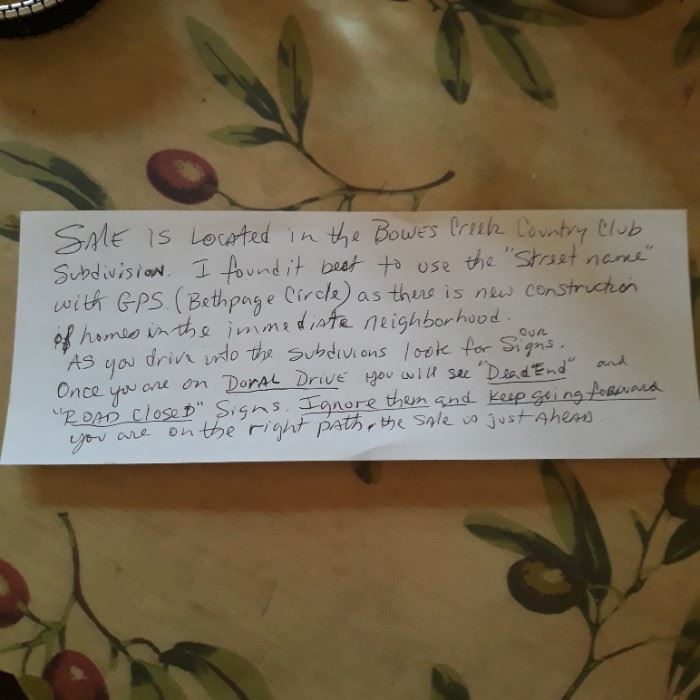 SALE IS Located in the BOWES Creek Country Club
Subdivision. I found it best to use the "Street name"
with GPS. (Bethpage Circle) as there is new construction
of homes in the immediate neighborhood.
AS you drive into the Subdivions look for our Signs.
Once you are on DORAL DRIVE you will see "Dead End" and
"ROAD Closed" Signs. Ignore them and keep going forward
you are on the right path, the Sale is just AHEAD.